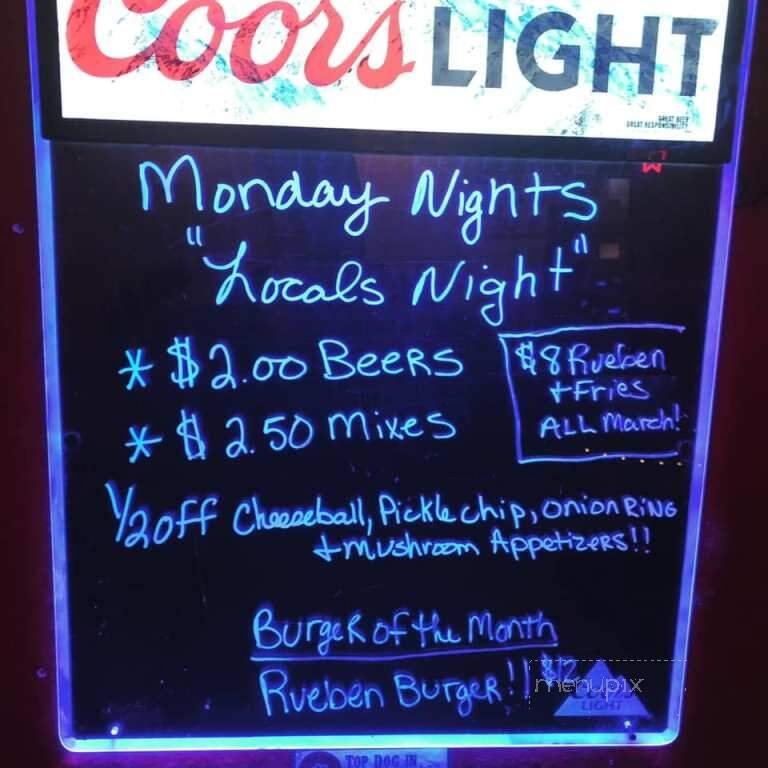 Coors LIGHT
GREAT BEER
GREAT RESPONSIBILITY
Monday Nights
"Locals Night"
* $2.00 Beers
* $2.50 Mixes
$8 Rueben
+ Fries
ALL March!
1/2 off Cheeseball, Pickle chip, onion RiNG
+ mushroom Appetizers!!
Burger of the Month
Rueben Burger!! $12
menupix
LIGHT
TOP DOG IN